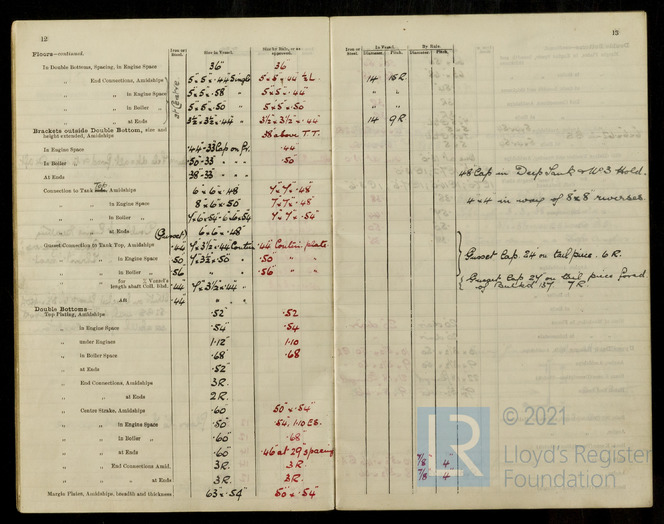 12
Floors—continued.
Iron or Steel.
Size in Vessel.
Size by Rule, or as approved.
In Double Bottoms, Spacing, in Engine Space 36" 36
" End Connections, Amidships 5"×5"×·44 Single 5"×5"×·44"
" " in Engine Space 5"×5"×·58" 5"×5"×·44"
" " in Boiler " 5"×5"×·50" 5"×5"×·50
" " at Ends 3½"×3½"×·44" 3½×3½"×·44"
Brackets outside Double Bottom, size and
height extended, Amidships ·38 above T.T.
In Engine Space ·44-33 Cap on Fr. ·44"
In Boiler " ·50-33" " " ·50
At Ends 38-33" " "
Connection to Tank Top, Amidships 6×6×·48 7"×7"×·48"
" " in Engine Space 8×6×·50" 7"×7"×·48"
" " in Boiler " 7×6×54-6×6×54 7"×7"×·54"
" " at Ends (Gusset) 6"×6"×·48"
Gusset Connection to Tank Top, Amidships ·44 7×3½×·44 Contin ·44 Contin. plate
" " in Engine Space ·50 7×3½×·50" " ·50" " "
" " in Boiler " ·56 " " ·56" " "
" " for ¾ Vessel's
length abaft Coll. Bhd. ·44 7×3½×·44" "
" " Aft ·44" " "
Double Bottoms—
Top Plating, Amidships ·52" ·52
" in Engine Space ·54" ·54
" under Engines 1·12" 1·10
" in Boiler Space ·68" ·68
" at Ends ·52"
" End Connections, Amidships 3R.
" " at Ends 2R.
" Centre Strake, Amidships ·60 50"×·54"
" " in Engine Space ·50" ·54, 1·10 E.S.
" " in Boiler " ·60" ·68"
" " at Ends ·60" ·46 at 29 spacing
" " End Connections Amid. 3R. 3R
" " at Ends 3R. 3R.
Margin Plates, Amidships, breadth and thickness 63"×·54" 50"×·54"
13
Iron or Steel.
In Vessel. By Rule.
Diameter. Pitch. Diameter. Pitch.
14 15R
" "
" "
14 9R
48 Cap in Deep Tank & No 3 Hold.
4×4 in way of 8"×8 reverses.
Gusset Cap. 24 on tail piece. 6R.
Gusset Cap 24 on tail piece forwd
of Bulkhd 157 7R
7/8" 4"
7/8" 4"
LR
© 2021
Lloyd's Register
Foundation